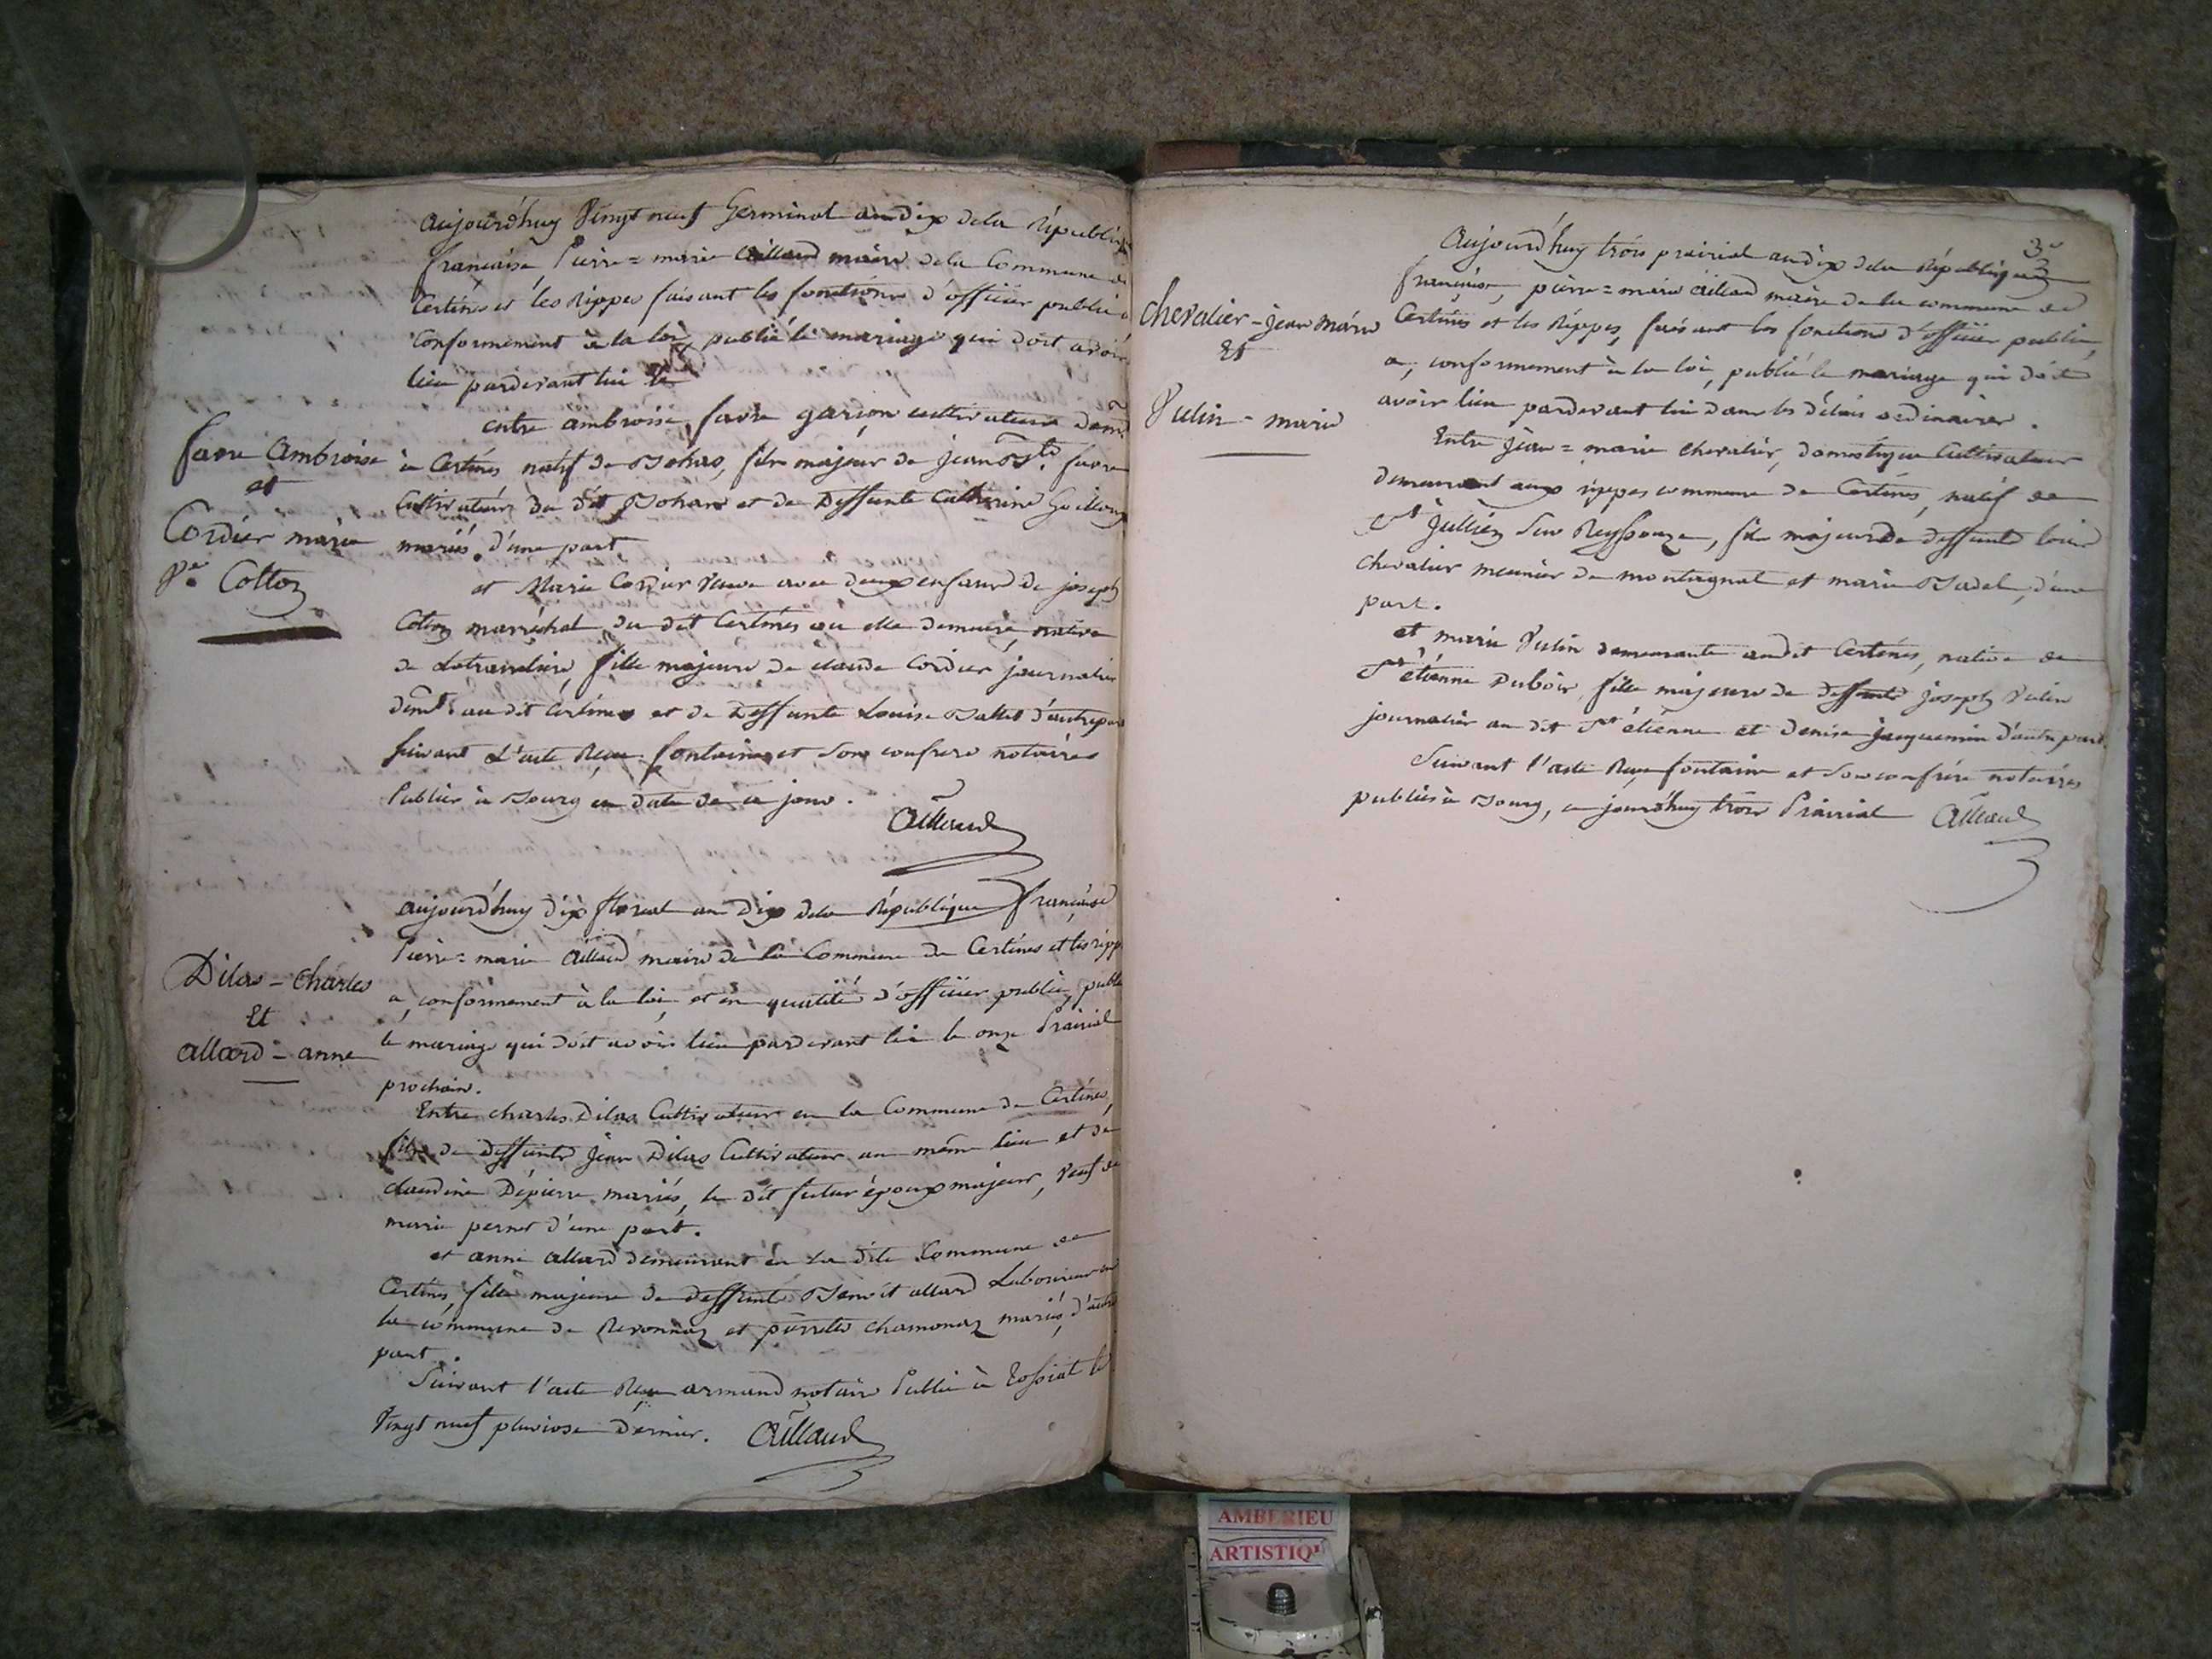 Aujourd'huy Vingt neuf Germinal an dix de la République
française Pierre = marie Aillaud maire de la Commune de
Certines et les Rippes faisant les fonctions d'officier public a
Conformement à la loi, publié le mariage qui doit avoir
lieu pardevant lui le
entre ambroise favre garçon cultivateur dem.t
favre Ambroise
et
Cordier marie
v.e Cotton
à Certines natif de Bohas, fils majeur de jean B.te favre
Cultivateur du dit Bohas et de Deffunte Catherine
mariés. d'une part
et Marie Cordier Veuve avec deux enfans de joseph
Coton maréchal du dit Certines ou elle demeure, native
de Latranclière, fille majeure de claude Cordier journalier
demt au dit Certines et de Deffunte Louise Ballet d'autre part
suivant L'acte Reçu fontaine et Son confrere notaires
Publics à Bourg en date de ce jour.
Aillaud
aujourd'huy dix floréal an Dix de la République française
Pierre = marie Aillaud maire de la Commune de Certines et les ripp.
a, conformement à la loi, et en qualité d'officier public, publié
le mariage qui doit avoir lieu pardevant lui le onze Prairial
prochain.
Dilas - Charles
Et
allard - anne
Entre charles Dilas Cultivateur en la Commune de Certines,
fils de Deffunts Jean Dilas Cultivateur au même lieu et de
claudine Dépierre mariés, le dit futur époux majeur, Veuf de
marie pernet d'une part.
et anne allard demeurant en la dite Commune de
Certines, fille majeure de deffunts Benoit allard Laboureur en
la commune de Revonnaz et pierrette chamonaz mariés, d'autre
part.
Suivant l'acte Reçu armand notaire Public à Tossiat le
Vingt neuf pluviose dernier. Aillaud
3e
Aujourd'huy trois prairial an dix de la République
française, pierre = marie Aillaud maire de la commune de
Certines et les Rippes, faisant les fonctions d'officier public,
a, conformement à la loi, publié le mariage qui doit
avoir lieu pardevant lui dans les délais ordinaires.
chevalier - jean marie
Et
Vulin - marie
Entre Jean = marie chevalier, domestique Cultivateur
demeurant aux rippes commune de Certines, natif de
St Jullien Sur Reyssouze, fils majeur de deffunts louis
chevalier meunier de montagnat et marie Badel, d'une
part.
et marie Vulin demeurante audit Certines, native de
St étienne Dubois, fille majeure de deffunts joseph Vulin
journalier au dit St étienne et denise jacquemin d'autre part.
Suivant l'acte Reçu fontaine et Son confrère notaires
publics à Bourg, ce jourd'huy trois Prairial Aillaud
AMBERIEU
ARTISTIQU